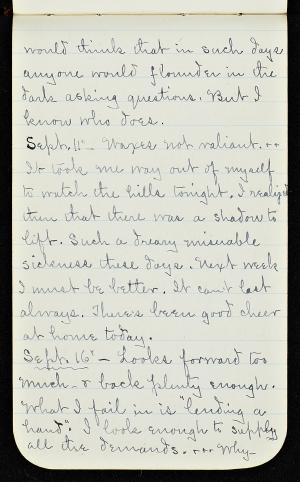 would think that in such days
anyone would flounder in the
dark asking questions. But I
know who does.
Sept. 11 - Waxes not valiant. ..
It took me way out of myself
to watch the hills tonight. I realized
then that there was a shadow to
lift. Such a dreary miserable
sickness these days. Next week
I must be better. It can't last
always. There's been good cheer
at home today.
Sept. 16 - Looks forward too
much - & back plenty enough.
What I fail in is "lending a
hand". I look enough to supply
all the demands. ... Why-